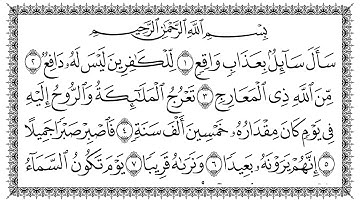 بِسْمِ ٱللَّهِ ٱلرَّحْمَٰنِ ٱلرَّحِيمِ
سَأَلَ سَآئِلٌۢ بِعَذَابٍ وَاقِعٍ ١ لِّلْكَٰفِرِينَ لَيْسَ لَهُۥ دَافِعٌ ٢
مِّنَ ٱللَّهِ ذِى ٱلْمَعَارِجِ ٣ تَعْرُجُ ٱلْمَلَٰٓئِكَةُ وَٱلرُّوحُ إِلَيْهِ
فِى يَوْمٍ كَانَ مِقْدَارُهُۥ خَمْسِينَ أَلْفَ سَنَةٍ ٤ فَٱصْبِرْ صَبْرًا جَمِيلًا
٥ إِنَّهُمْ يَرَوْنَهُۥ بَعِيدًا ٦ وَنَرَىٰهُ قَرِيبًا ٧ يَوْمَ تَكُونُ ٱلسَّمَآءُ